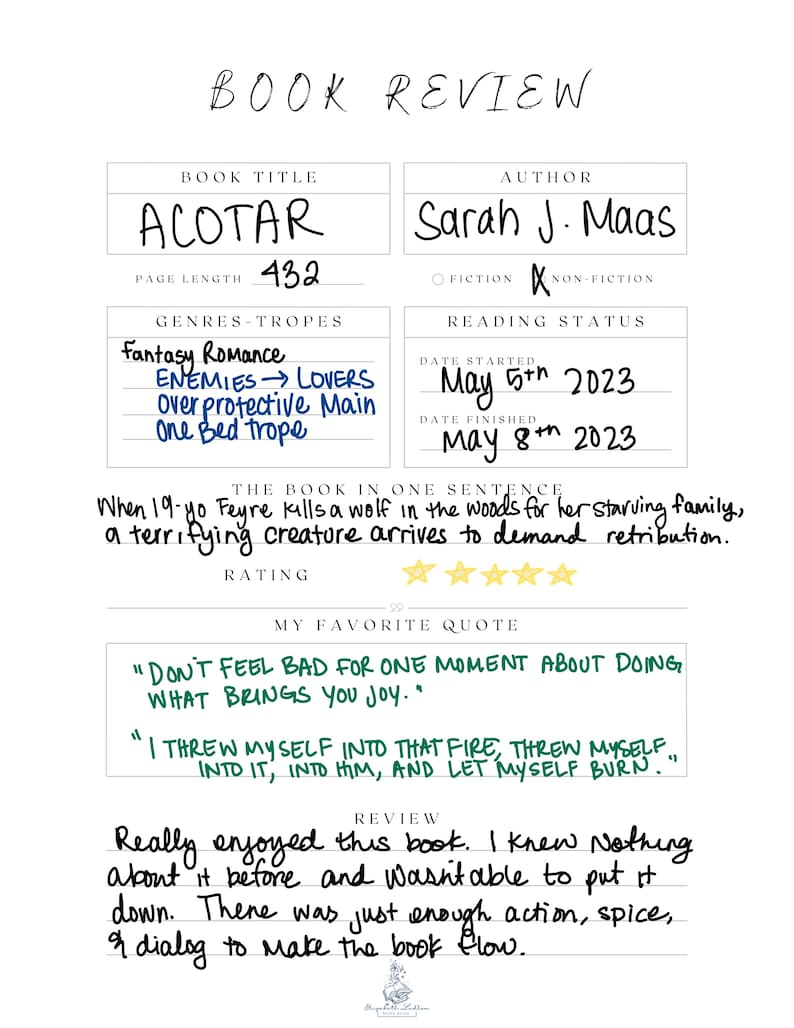 BOOK REVIEW
BOOK TITLE
ACOTAR
AUTHOR
Sarah J. Maas
PAGE LENGTH 432
FICTION X NON-FICTION
GENRES-TROPES
Fantasy Romance
ENEMIES → LOVERS
Overprotective Main
One Bed trope
READING STATUS
DATE STARTED
May 5th 2023
DATE FINISHED
May 8th 2023
THE BOOK IN ONE SENTENCE
When 19-yo Feyre kills a wolf in the woods for her starving family,
a terrifying creature arrives to demand retribution.
RATING
MY FAVORITE QUOTE
"DON'T FEEL BAD FOR ONE MOMENT ABOUT DOING
WHAT BRINGS YOU JOY."
"I THREW MYSELF INTO THAT FIRE, THREW MYSELF
INTO IT, INTO HIM, AND LET MYSELF BURN."
REVIEW
Really enjoyed this book. I knew Nothing
about it before and wasn't able to put it
down. There was just enough action, spice,
& dialog to make the book flow.
Elizabeth Ludlow